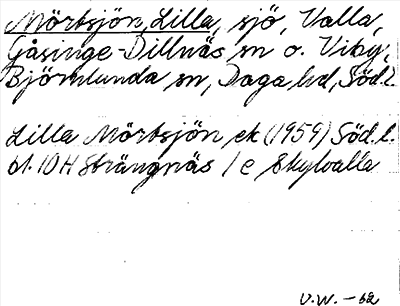 Mörtsjön, Lilla, sjö, Valla,
Gåsinge-Dillnäs sn o. Viby,
Björnlunda sn, Daga hd, Söd.l.
Lilla Mörtsjön ek (1959) Söd.l.
bl. 10H Strängnäs / e Skylvalla
U.W. -62